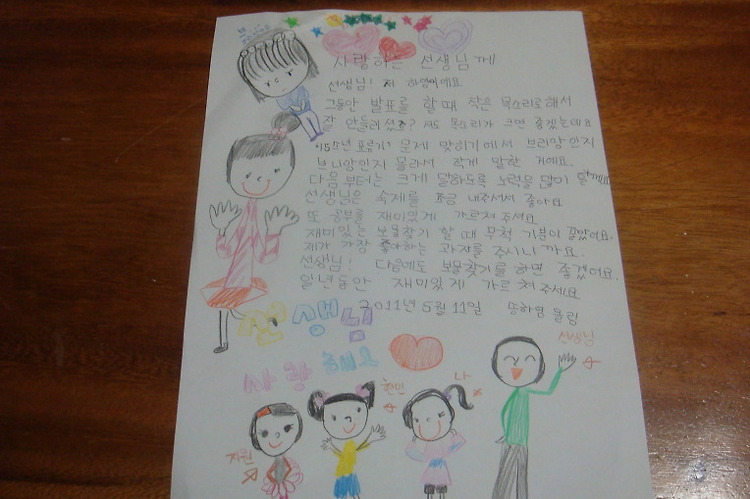 사랑하는 선생님께
선생님! 저 하영이에요
그동안 발표를 할 때 작은 목소리로 해서
잘 안들리셨죠? 저도 목소리가 크면 좋겠는데요
문제 맞히기에서 브리앙인지
브니앙인지 몰라서 작게 말한 거예요.
다음부터는 크게 말하도록 노력을 많이 할께요
선생님은 숙제를 조금 내주셔서 좋아요
또 공부를 재미있게 가르쳐 주세요
재미있는 보물찾기 할 때 무척 기분이 좋았어요.
제가 가장 좋아하는 과자를 주시니까요.
선생님! 다음에도 보물찾기를 하면 좋겠어요.
일년동안 재미있게 가르쳐 주세요
2011년 5월 11일 송하영 올림
선생님
사랑해요
선생님
나
현민
지원